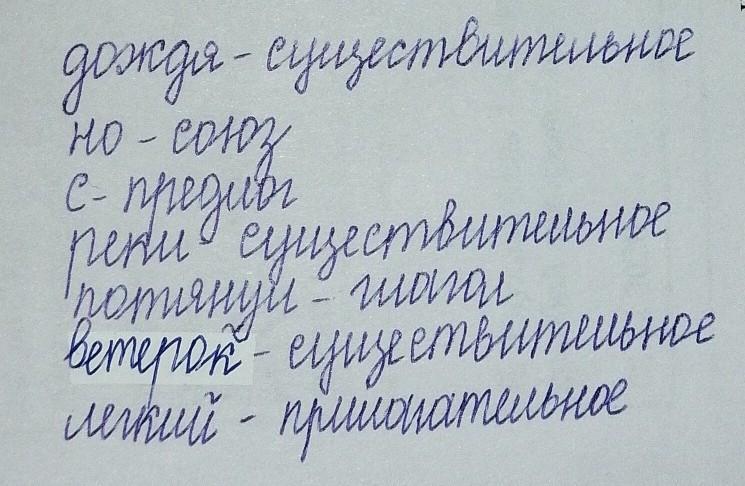 дождя - существительное
но - союз
с - предлог
реки существительное
потянул - глагол
ветерок - существительное
легкий - прилагательное